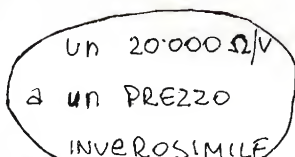 un 20.000 Ω/V
a un PREZZO
INVEROSIMILE